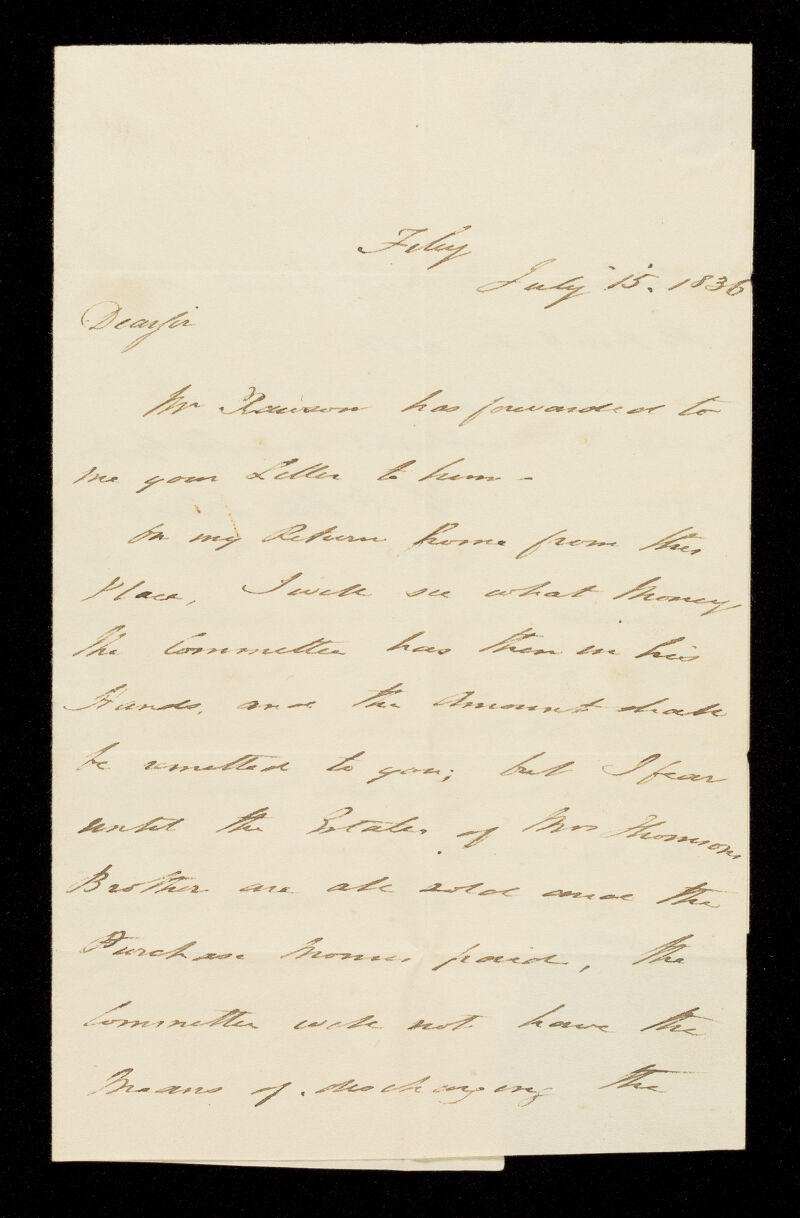 Filey
July 15. 1836
Dear Sir
Mr Rawson has forwarded to
me your Letter to him -
On my Return home from this
Place, I will see what Money
the Committee has then in his
Hands, and the Amount shall
be remitted to you; but I fear
until the Estates of Mrs Thomsons
Brother are all sold and the
Purchase Monies paid, the
Committee will not have the
Means of discharging the